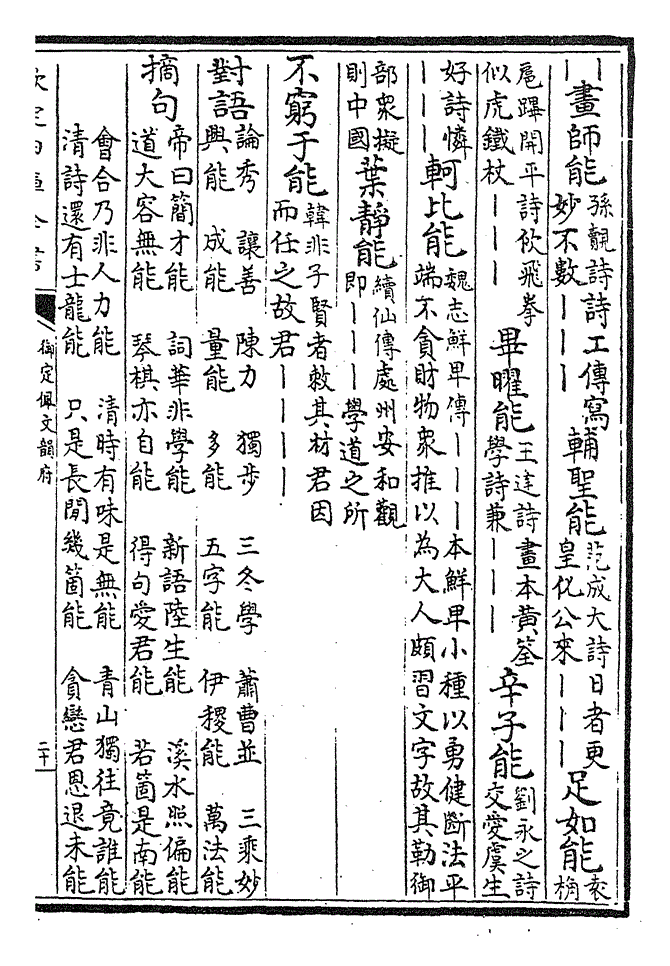 ｜畫師能 孫覿詩詩工傳寫妙不數｜｜｜ 輔聖能 范成大詩日者更皇化公來｜｜｜ 足如能 袁桷
扈蹕開平詩佽飛拳似虎鐵杖｜｜｜ 畢曜能 王建詩畫本黃筌學詩兼｜｜｜ 辛子能 劉永之詩交愛虞生
好詩憐｜｜｜ 軻比能 魏志鮮卑傳｜｜｜本鮮卑小種以勇健斷法平端不貪財物衆推以為大人頗習文字故其勒御
部衆擬則中國 葉靜能 續仙傳處州安和觀即｜｜｜學道之所
不窮于能 韓非子賢者敕其材君因而任之故君｜｜｜｜
對語 論秀 興能 讓善 成能 陳力 量能 獨步 多能 三冬學 五字能 蕭曹並 伊稷能 三乘妙 萬法能
摘句 帝曰簡才能 道大容無能 詞華非學能 琴棋亦自能 新語陸生能 得句愛君能 溪水照偏能 若箇是南能
會合乃非人力能 清詩還有士龍能 清時有味是無能 只是長閒幾箇能 青山獨往竟誰能 貪戀君恩退未能
欽定四庫全書
御定佩文韻府
二十